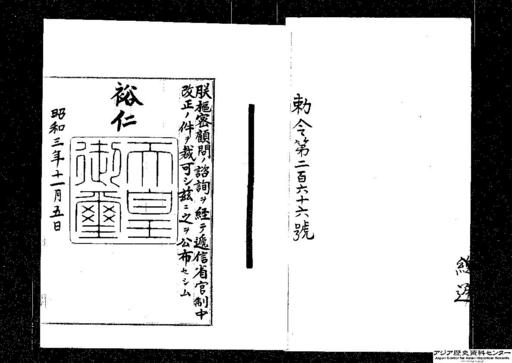 勅令第二百六十六號
朕樞密顧問ノ諮詢ヲ経テ遞信省官制中
改正ノ件ヲ裁可シ茲ニ之ヲ公布セシム
裕仁
天皇
御璽
昭和三年十一月五日
アジア歴史資料センター
Japan Center for Asian Historical Records